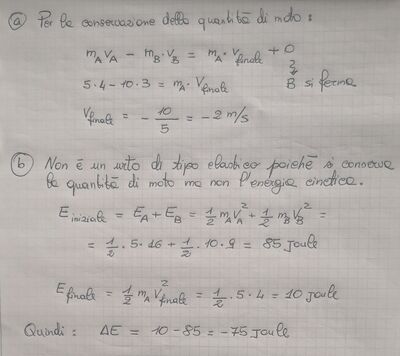 a) Per la conservazione della quantità di moto :
m_A v_A - m_B · v_B = m_A · v_finale + 0
↓
B si ferma
5·4 - 10·3 = m_A · v_finale
v_finale = - 10/5 = -2 m/s
b) Non è un urto di tipo elastico poichè si conserva
la quantità di moto ma non l'energia cinetica.
E iniziale = E_A + E_B = 1/2 m_A v_A² + 1/2 m_B v_B² =
= 1/2 · 5 · 16 + 1/2 · 10 · 9 = 85 Joule
E finale = 1/2 m_A v²_finale = 1/2 · 5 · 4 = 10 Joule
Quindi : ΔE = 10 - 85 = -75 Joule